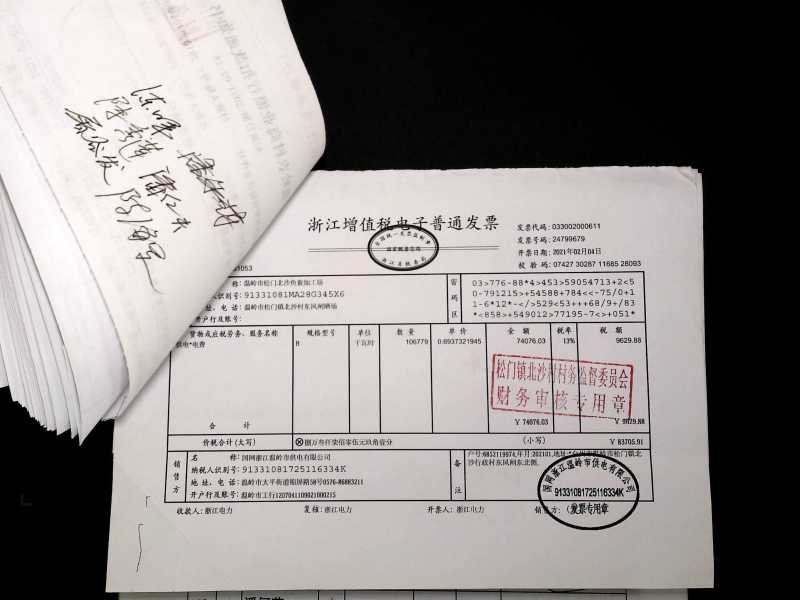 浙江增值税电子普通发票
全国统一发票监制章
国家税务总局
浙江省税务局
发票代码: 033002000611
发票号码: 24799679
开票日期: 2021年02月04日
校 验 码: 07427 30287 11685 28093
1053
称: 温岭市松门北沙鱼粉加工场
人识别号: 91331081MA28G345X6
址、电话: 温岭市松门镇北沙村东风闸晒场
开户行及账号:
密码区
03>776-88*4>453>59054713+2<5
0-791215>+54588+784<<-75/0+1
1-6*12*-</>529<53+++68/9+/83
*<858>+549012>77195-7<>+051*
货物或应税劳务、服务名称 规格型号 单位 数 量 单 价 金 额 税率 税 额
供电*电费 H 千瓦时 106779 0.6937321945 74076.03 13% 9629.88
松门镇北沙村村务监督委员会
财务审核专用章
合 计 ¥ 74076.03 ¥ 9629.88
价税合计(大写) ⊗捌万叁仟柒佰零伍元玖角壹分 (小写) ¥ 83705.91
销售方
名 称: 国网浙江温岭市供电有限公司
纳税人识别号: 91331081725116334K
地 址、电 话: 温岭市太平街道锦屏路58号0576-86883211
开户行及账号: 温岭市工行1207041109021000215
备注
户号:6852119974,年月:202101,地址:
沙行政村东风闸东北侧,
国网浙江温岭市供电有限公司
91331081725116334K
发票专用章
收款人: 浙江电力 复核: 浙江电力 开票人: 浙江电力 销售方: (章)